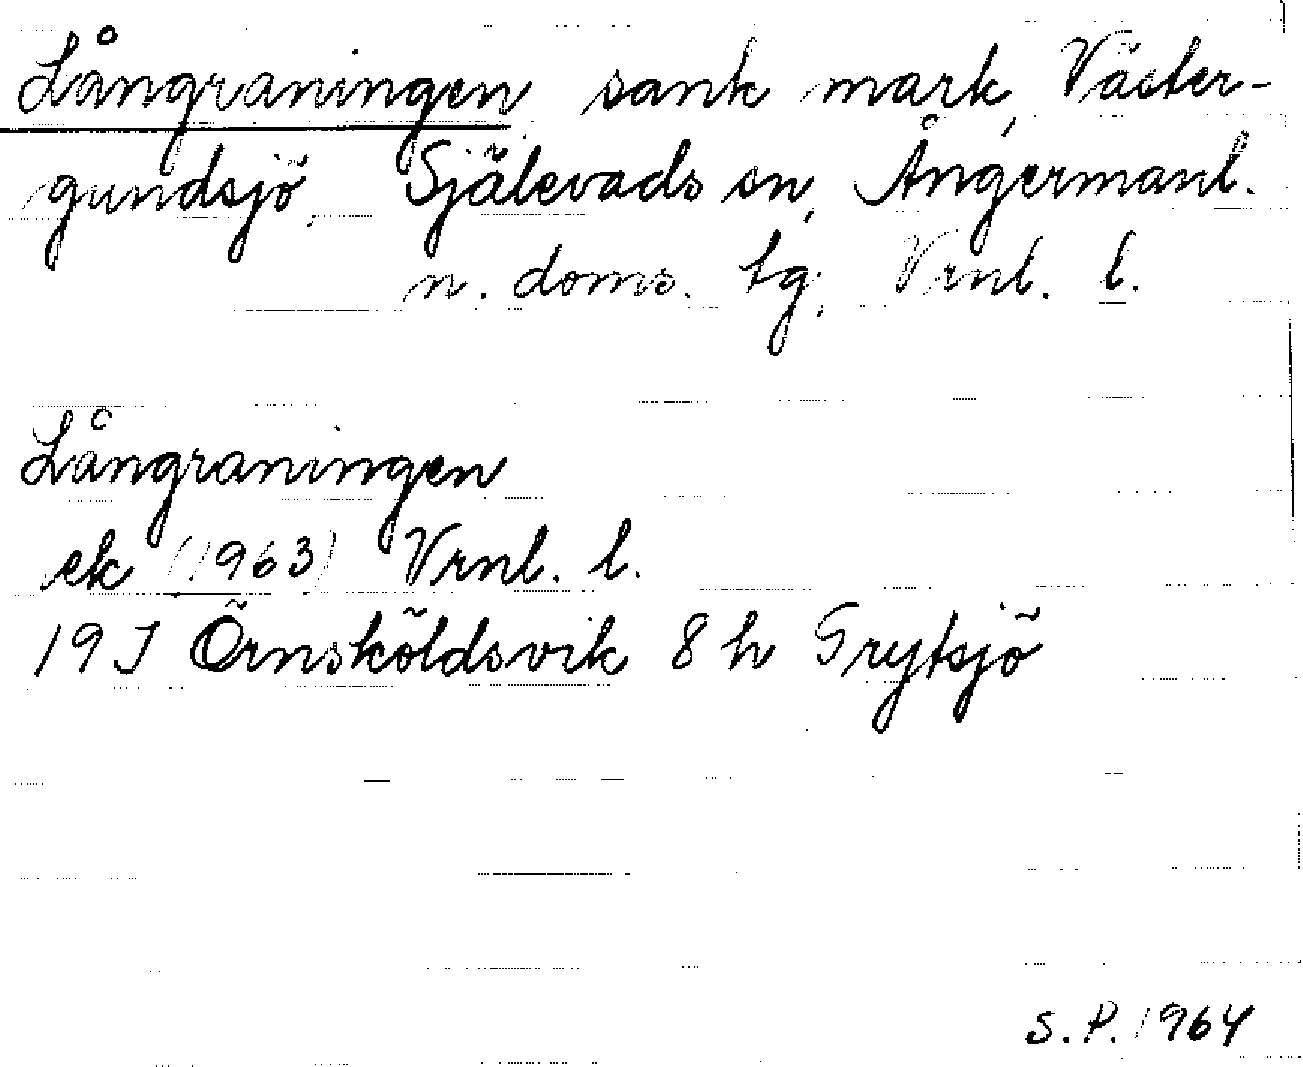 Långraningen sank mark, Väster-
gundsjö, Själevads sn, Ångermanl.
n. doms. tg, Vrnl. l.
Långraningen
ek (1963) Vrnl. l.
19 J Örnsköldsvik 8 h Grytsjö
S. P. 1964